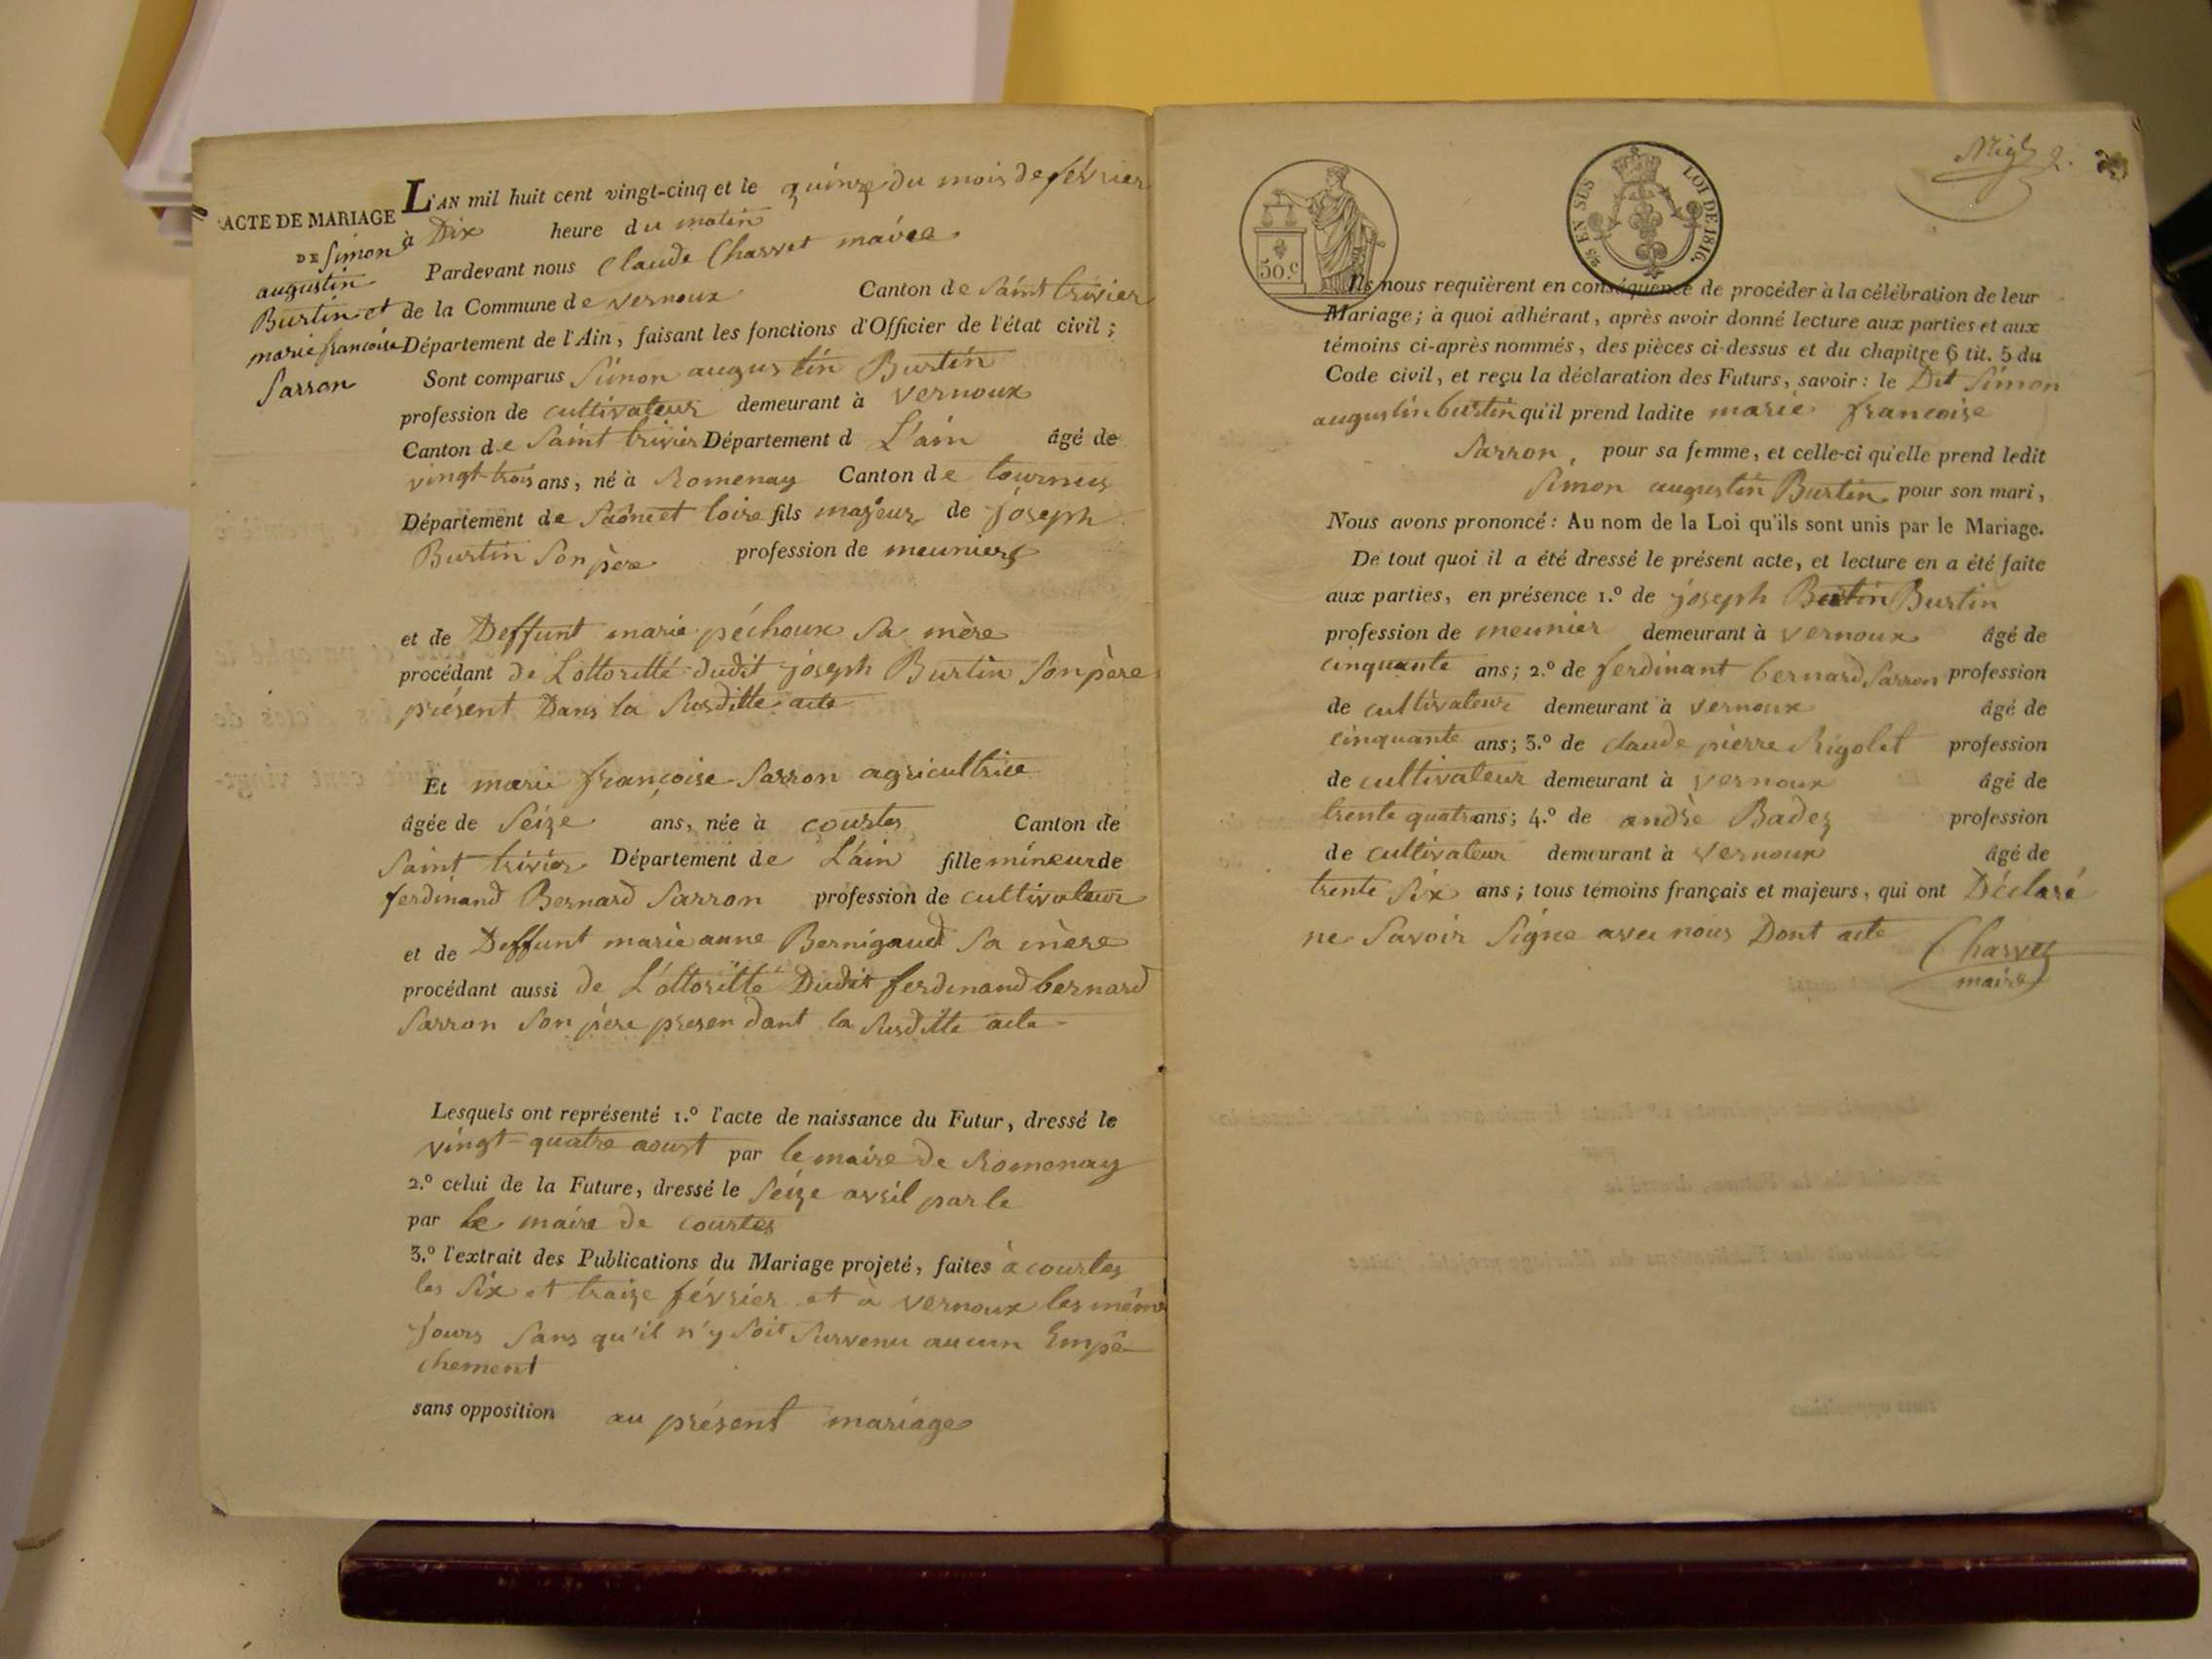 ACTE DE MARIAGE
DE Simon
augustin
Burtin et
marie francoise
Sarron
L'AN mil huit cent vingt-cinq et le quinze du mois de février
à Dix heure du matin
Pardevant nous Claude Charvet maire
de la Commune de vernoux Canton de Saint trivier
Département de l'Ain, faisant les fonctions d'Officier de l'état civil;
Sont comparus Simon augustin Burtin
profession de cultivateur demeurant à vernoux
Canton de Saint trivier Département d L'ain âgé de
vingt-trois ans, né à Romenay Canton de tournus
Département de Saône et loire fils majeur de joseph
Burtin Son père profession de meunier
et de Deffunt marie péchoux Sa mère
procédant de Lottoritté dudit joseph Burtin Son père
présent Dans la Susditte acte
Et marie françoise Sarron agricultrice
âgée de Seize ans, née à courtes Canton de
Saint trivier Département de L'ain fille mineur de
ferdinand Bernard Sarron profession de cultivateur
et de Deffunt marie anne Bernigaud Sa mère
procédant aussi de L'ottoritté Dudit ferdinand bernard
Sarron Son père presen dant la Susditte acte
Lesquels ont représenté 1.º l'acte de naissance du Futur, dressé le
vingt-quatre aoust par le maire de Romenay
2.º celui de la Future, dressé le Seize avril par le
par le maire de courtes
3.º l'extrait des Publications du Mariage projeté, faites à courtes
les Six et traize février et à vernoux les même
jours Sans qu'il n'y Soit Survenu aucun Empê-
chement
sans opposition au présent mariage
50.c
25 EN SUS
LOI DE 1816.
2.
Ils nous requièrent en conséquence de procéder à la célébration de leur
Mariage; à quoi adhérant, après avoir donné lecture aux parties et aux
témoins ci-après nommés, des pièces ci-dessus et du chapitre 6 tit. 5 du
Code civil, et reçu la déclaration des Futurs, savoir: le Dit Simon
augustin burtin qu'il prend ladite marie francoise
Sarron, pour sa femme, et celle-ci qu'elle prend ledit
Simon augustin Burtin pour son mari,
Nous avons prononcé: Au nom de la Loi qu'ils sont unis par le Mariage.
De tout quoi il a été dressé le présent acte, et lecture en a été faite
aux parties, en présence 1.º de joseph Burtin Burtin
profession de meunier demeurant à vernoux âgé de
cinquante ans; 2.º de ferdinant bernard Sarron profession
de cultivateur demeurant à vernoux âgé de
cinquante ans; 3.º de claude pierre Rigolet profession
de cultivateur demeurant à vernoux âgé de
trente quatr ans; 4.º de andrè Badez profession
de cultivateur demeurant à vernoux âgé de
trente Six ans; tous témoins français et majeurs, qui ont Déclaré
ne Savoir Signe avec nous Dont acte
Charvet
maire